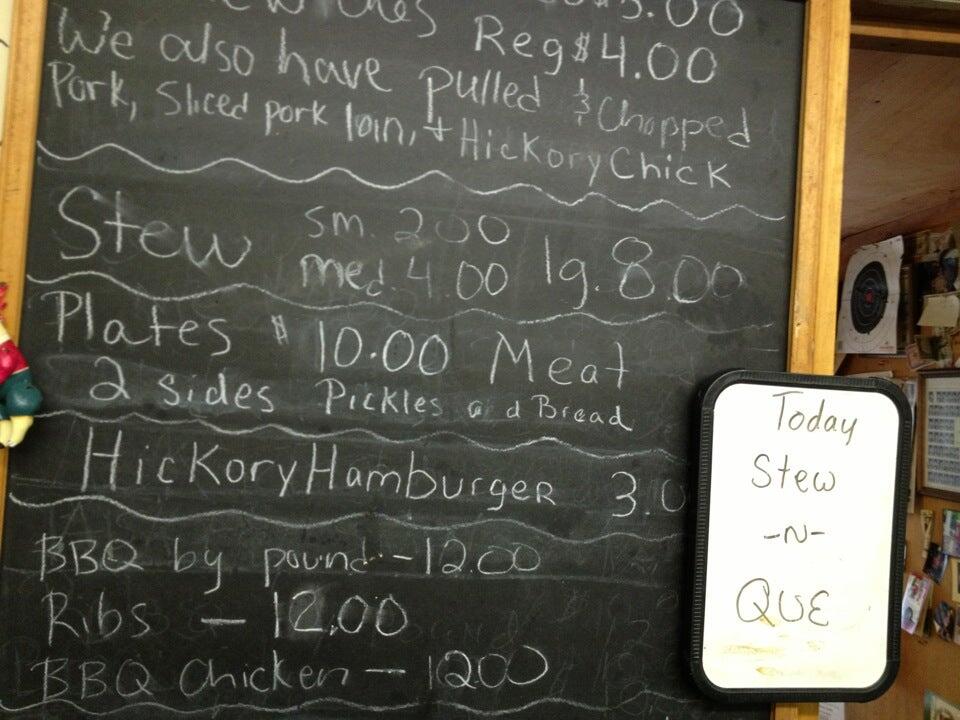 $3.00
Reg $4.00
We also have pulled & Chopped
Pork, Sliced pork loin, + Hickory Chick
Stew sm. 2.00
med. 4.00 lg. 8.00
Plates $10.00 Meat
2 sides Pickles a d Bread
Hickory Hamburger 3.0
BBQ by pound - 12.00
Ribs - 12.00
BBQ Chicken - 12.00
Today
Stew
-N-
QUE